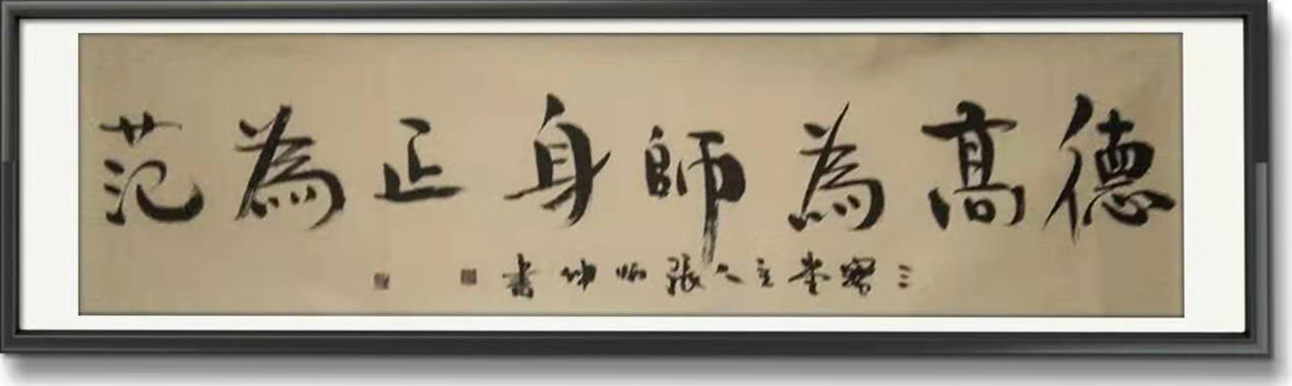 德高為師身正為范
三寶堂主人張炳坤書